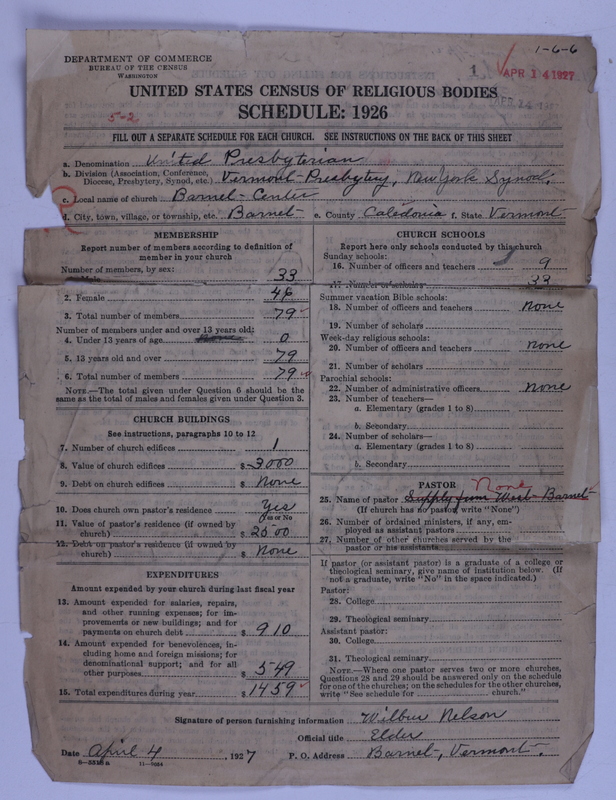 1-6-6
DEPARTMENT OF COMMERCE
BUREAU OF THE CENSUS
WASHINGTON
1
APR 14 1927
UNITED STATES CENSUS OF RELIGIOUS BODIES
5-2
SCHEDULE: 1926
FILL OUT A SEPARATE SCHEDULE FOR EACH CHURCH. SEE INSTRUCTIONS ON THE BACK OF THIS SHEET
a. Denomination United Presbyterian
b. Division (Association, Conference, Diocese, Presbytery, Synod, etc.) Vermont-Presbytery, New York Synod.
c. Local name of church Barnet-Center
d. City, town, village, or township, etc. Barnet e. County Caledonia f. State Vermont
MEMBERSHIP
Report number of members according to definition of
member in your church
Number of members, by sex:
1. Male 33
2. Female 46
3. Total number of members 79
Number of members under and over 13 years old:
4. Under 13 years of age None 0
5. 13 years old and over 79
6. Total number of members 79
NOTE.—The total given under Question 6 should be the
same as the total of males and females given under Question 3.
CHURCH BUILDINGS
See instructions, paragraphs 10 to 12
7. Number of church edifices 1
8. Value of church edifices $ 3000
9. Debt on church edifices $ None
10. Does church own pastor's residence? Yes
Yes or No
11. Value of pastor's residence (if owned by
church) $ 2500
12. Debt on pastor's residence (if owned by
church) $ None
EXPENDITURES
Amount expended by your church during last fiscal year
13. Amount expended for salaries, repairs,
and other running expenses; for im-
provements or new buildings; and for
payments on church debt $ 910
14. Amount expended for benevolences, in-
cluding home and foreign missions; for
denominational support; and for all
other purposes $ 549
15. Total expenditures during year $ 1459
CHURCH SCHOOLS
Report here only schools conducted by this church
Sunday schools:
16. Number of officers and teachers 9
17. Number of scholars 33
Summer vacation Bible schools:
18. Number of officers and teachers None
19. Number of scholars
Week-day religious schools:
20. Number of officers and teachers None
21. Number of scholars
Parochial schools:
22. Number of administrative officers None
23. Number of teachers—
a. Elementary (grades 1 to 8)
b. Secondary
24. Number of scholars—
a. Elementary (grades 1 to 8)
b. Secondary
PASTOR None
25. Name of pastor Supply from West-Barnet
(If church has no pastor write "None")
26. Number of ordained ministers, if any, em-
ployed as assistant pastors
27. Number of other churches served by the
pastor or his assistants
If pastor (or assistant pastor) is a graduate of a college or
theological seminary, give name of institution below. (If
not a graduate, write "No" in the space indicated.)
Pastor:
28. College
29. Theological seminary
Assistant pastor:
30. College
31. Theological seminary
NOTE.—Where one pastor serves two or more churches,
Questions 28 and 29 should be answered only on the schedule
for one of the churches; on the schedules for the other churches,
write "See schedule for church."
Signature of person furnishing information Wilbur Nelson
Official title Elder
Date April 4, 1927 P. O. Address Barnet, Vermont.